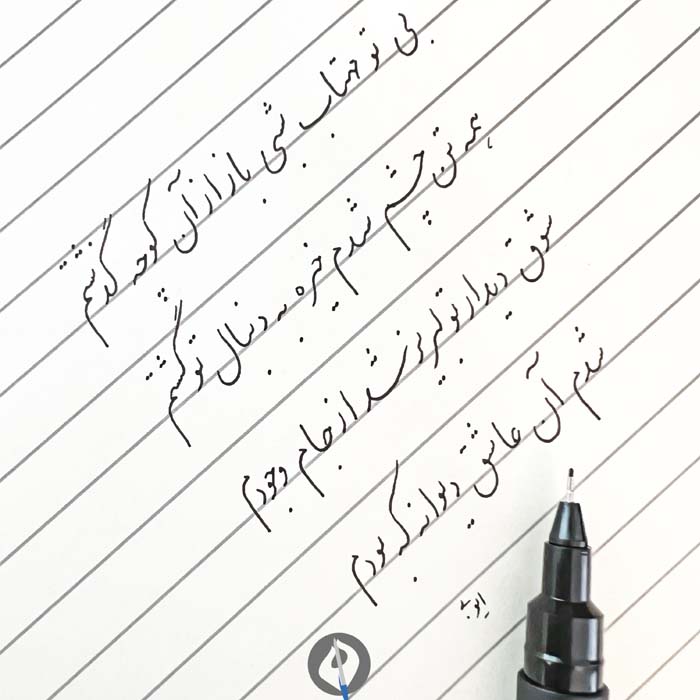 بی تو مهتاب شبی باز از آن کوچه گذشتم
همه تن چشم شدم خیره به دنبال تو گشتم
شوق دیدار تو لبریز شد از جام وجودم
شدم آن عاشق دیوانه که بودم